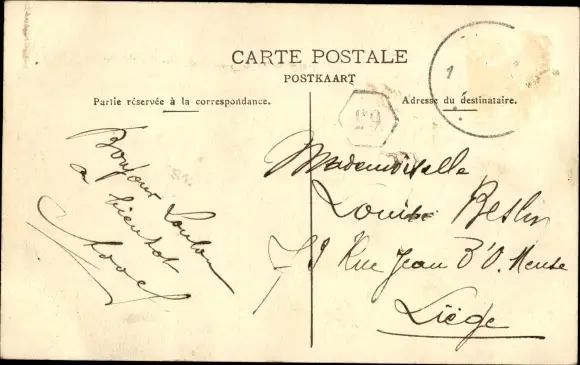 CARTE POSTALE
POSTKAART
Partie réservée à la correspondance.
Adresse du destinataire.
1
Bonjour Loulou
a bientot
Mademoiselle
Louise Beslin
Rue Jean d'O. Meuse
Liège